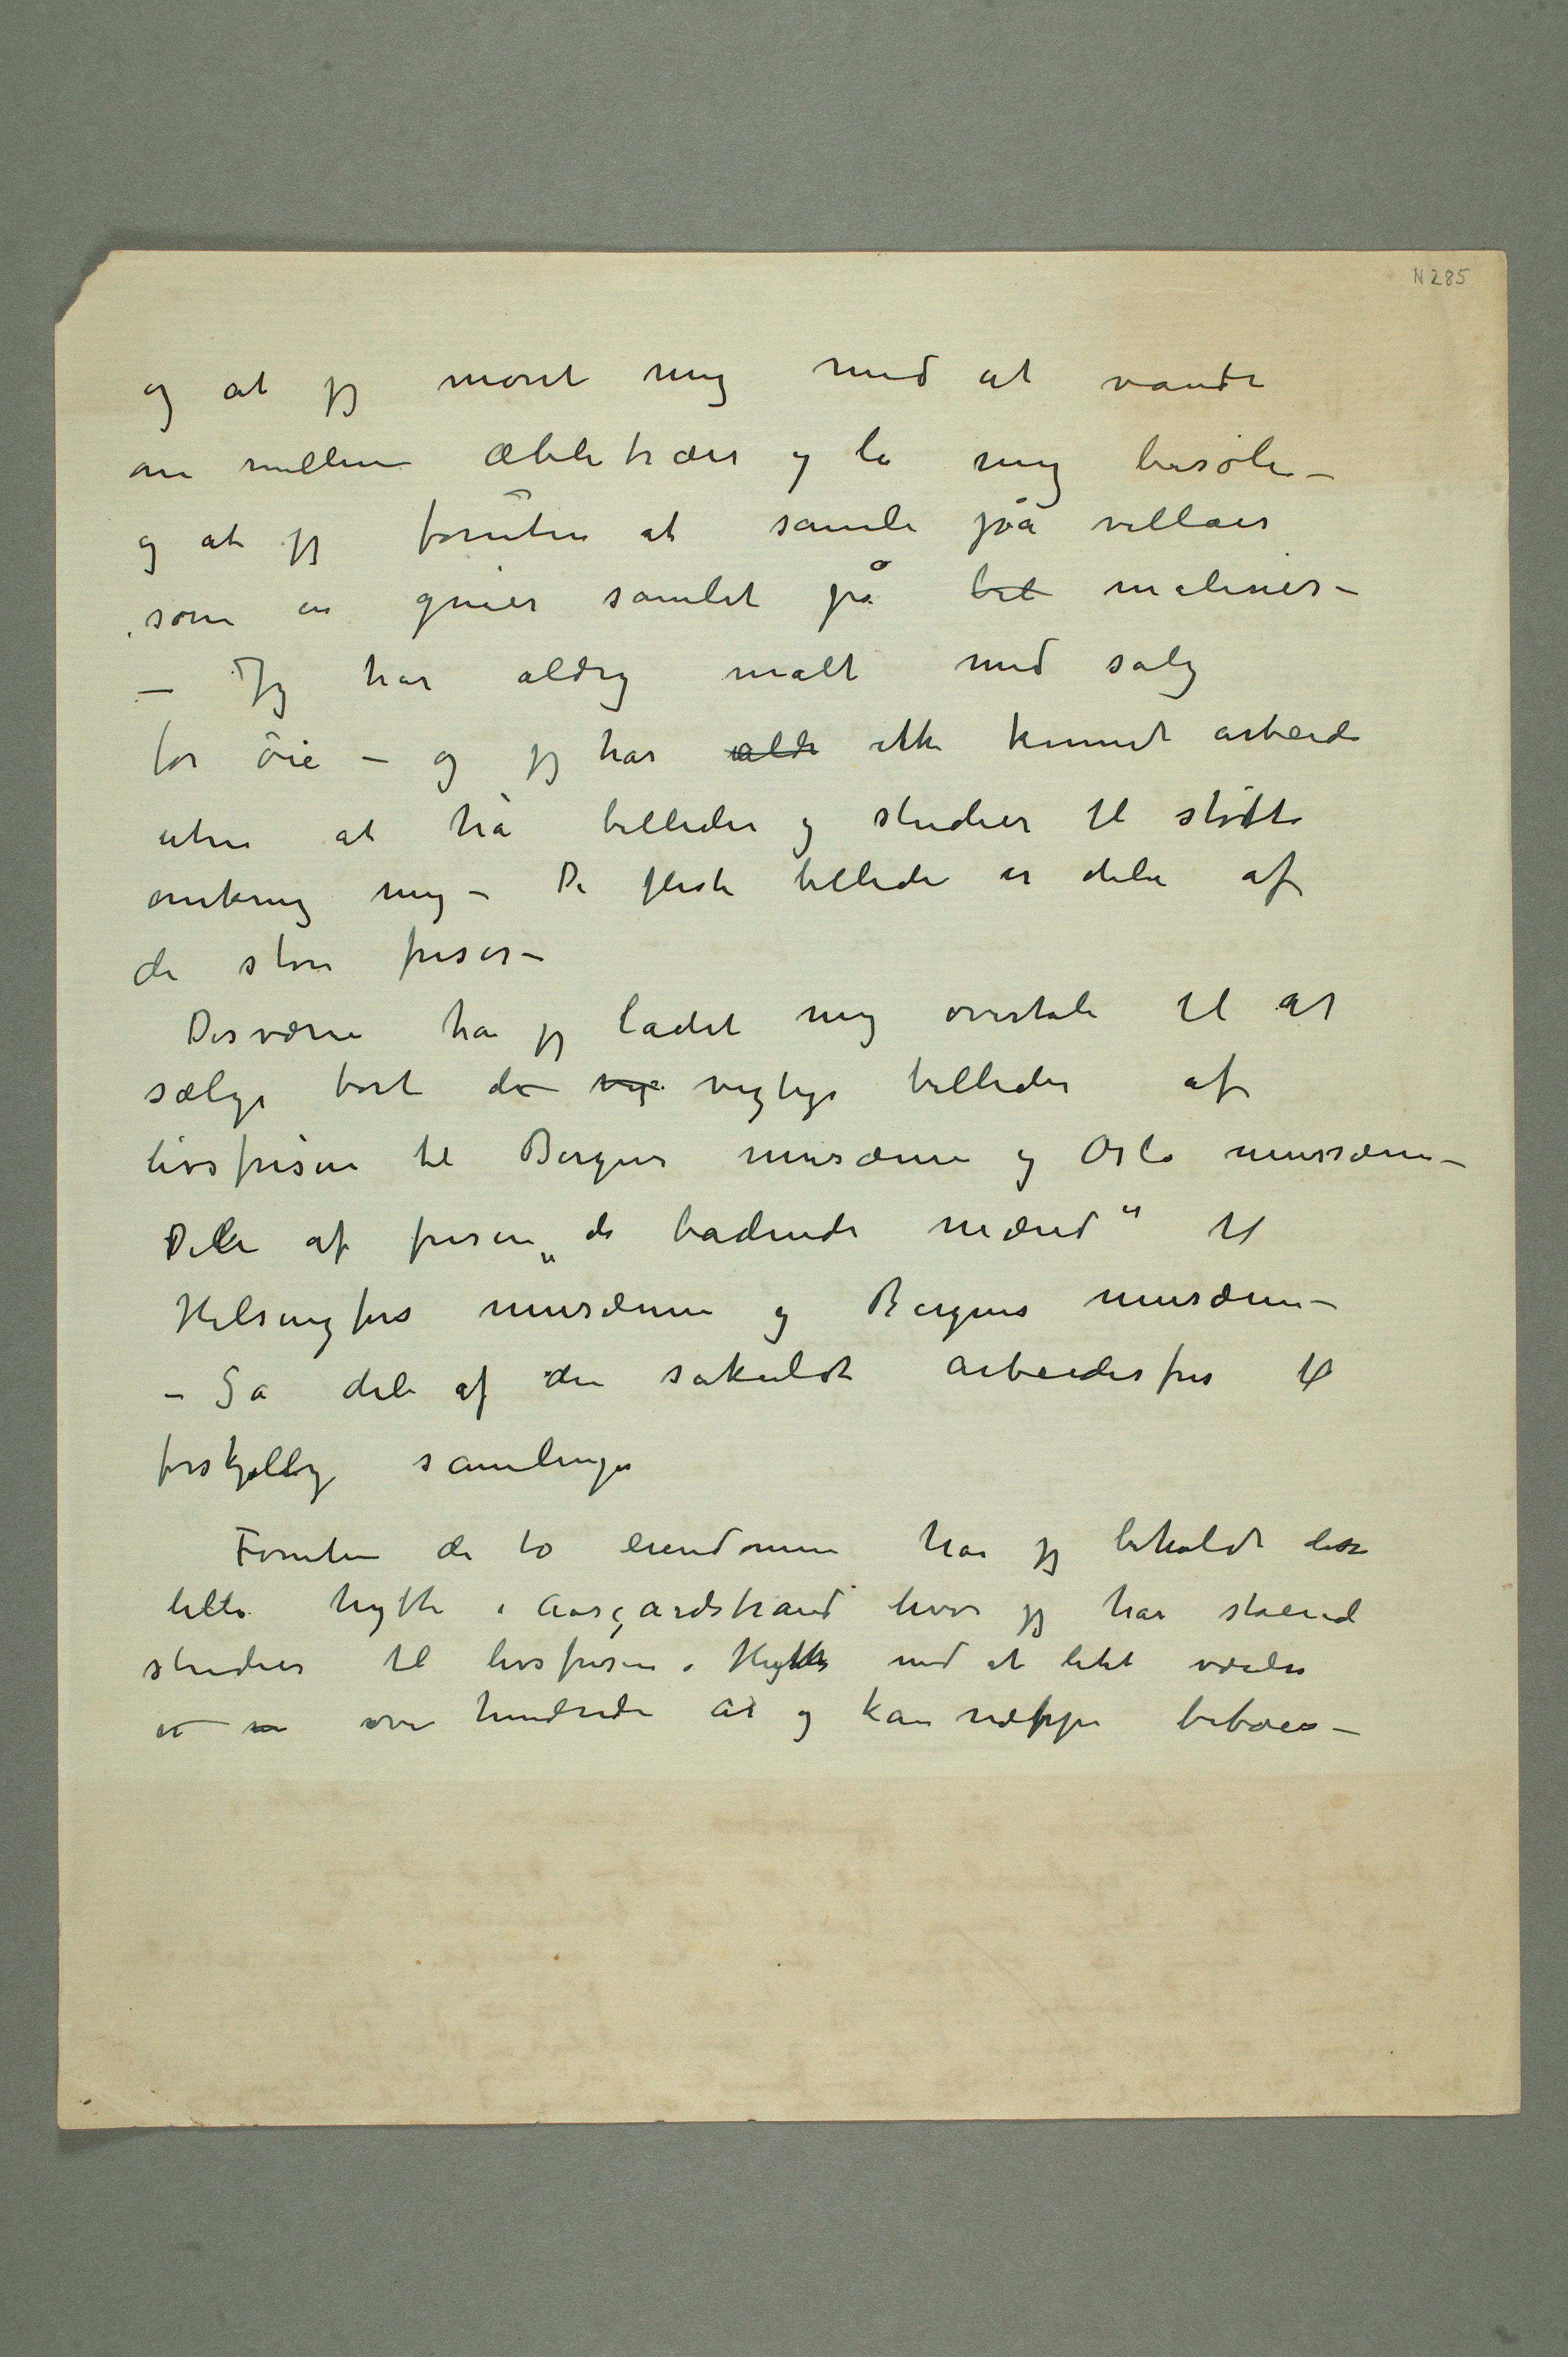 N 285
og at jeg moret mig med at vandre
om mellem æbletræer og la mig besole –
og at jeg foruten at samle på villaer
som en gnier samlet på bil malerier –
– Jeg har aldrig malt med salg
for öie – og jeg har aldr ikke kunnet arbeide
uten at ha billeder og studier til støtte
omkring mig – De fleste billeder er deler af
de store friser –
Desværre har jeg ladet mig overtale til at
sælge bort de vig vigtige billeder af
livsfrisen til Bergens musæum og Oslo mussæum –
Dele af frisen „de badende mænd“ til
Helsingfors musæum og Bergens musæum –
– Så dele af den såkaldte arbeiderfris til
forskjellige samlinger
Foruten de to eiendomme har jeg beholdt det
lille hytte i Aasgårdstrand hvor jeg har stående
studier til livsfrisen. Hytte med et litet værelse
er over hundrede år og kan næppe beboes –